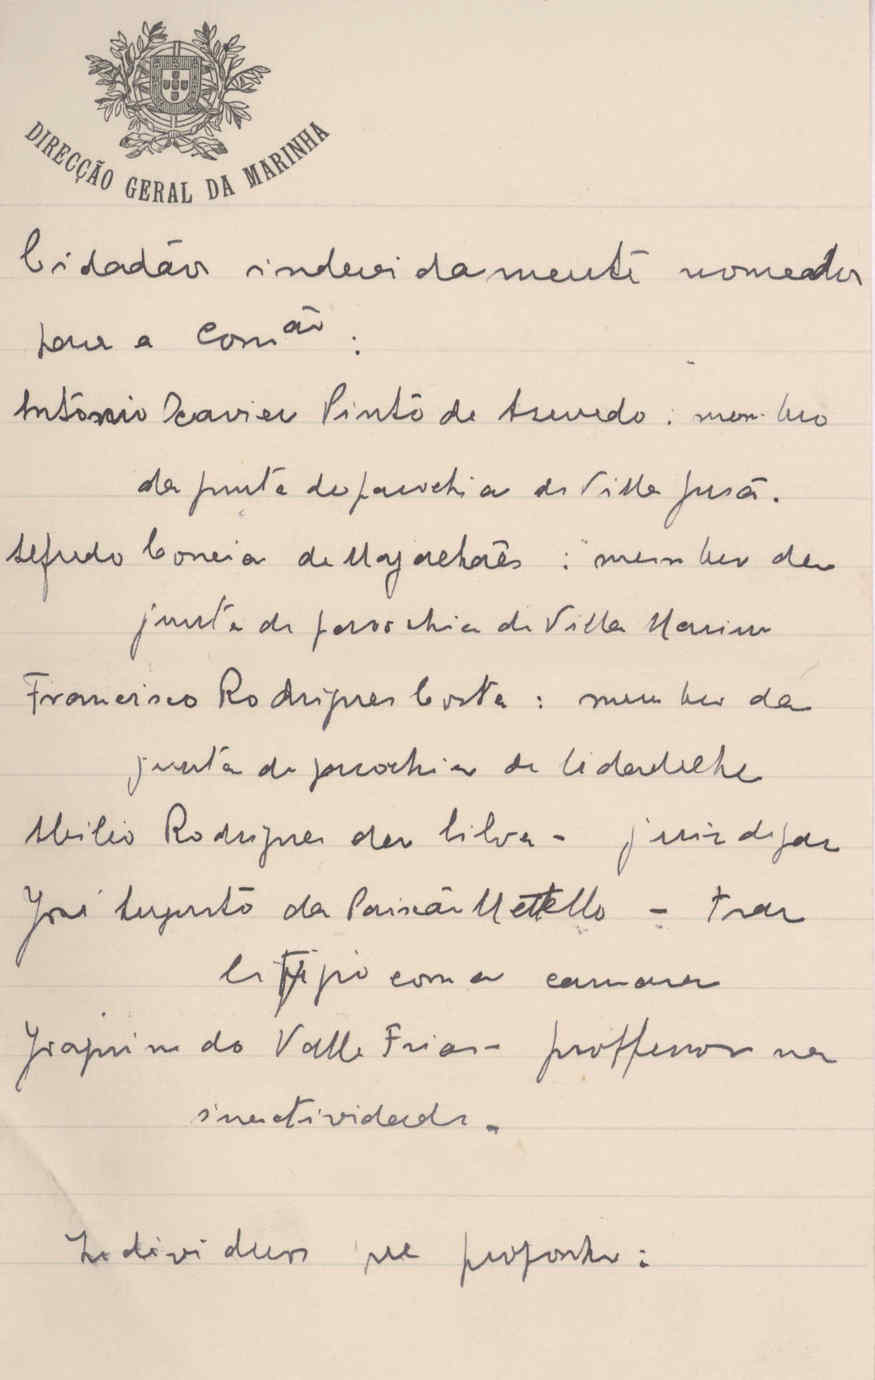 DIRECÇÃO GERAL DA MARINHA
Cidadãos indevidamente nomeados
para a Comão:
António Xavier Pinto de Azevedo: membro
da junta de parochia de Villa Jusã.
Alfredo Correia de Magalhães: membro da
junta de parochia de Villa Marim
Francisco Rodrigues Costa: membro da
junta de parochia de Cidadelhe
Abilio Rodrigues da Silva - juiz de paz
José Augusto da Paixão Mettello - traz
litigio com a camara
Joaquim do Valle Frias - proffessor na
inactividade.
Individuos que proponho: